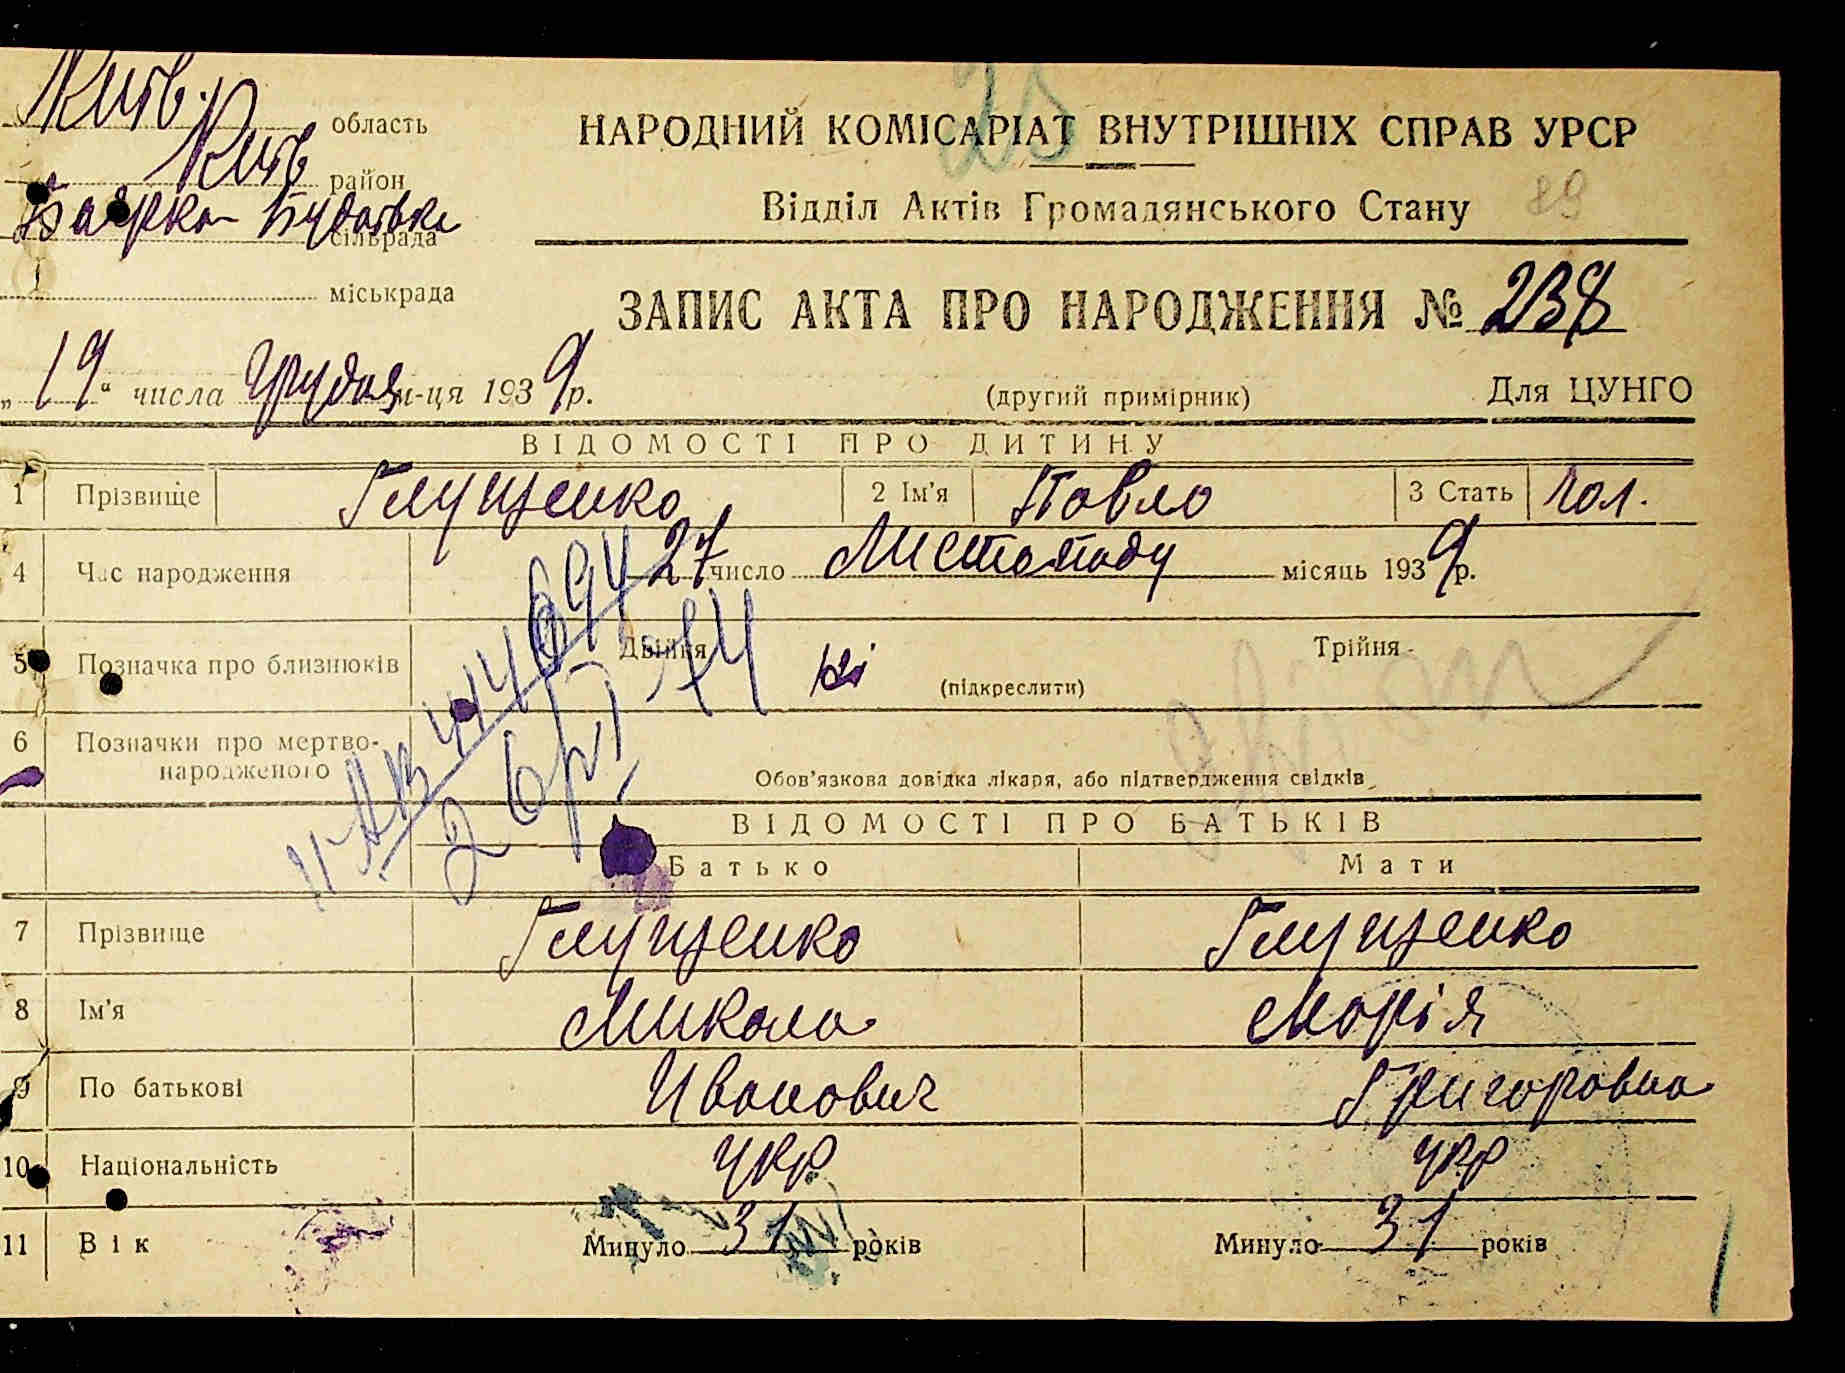 Київ. область
Київ район
Баярка Будаївка сільрада
міськрада
25
НАРОДНИЙ КОМІСАРІАТ ВНУТРІШНІХ СПРАВ УРСР
Відділ Актів Громадянського Стану
89
ЗАПИС АКТА ПРО НАРОДЖЕННЯ № 238
„19“ числа Грудня м-ця 1939 р.
(другий примірник)
Для ЦУНГО
ВІДОМОСТІ ПРО ДИТИНУ
1 Прізвище Глущенко 2 Ім'я Павло 3 Стать чол.
4 Час народження 27 число Листопаду місяць 1939 р.
5 Позначка про близнюків Двійня ні Трійня
(підкреслити)
6 Позначки про мертво-
народженого
Обов'язкова довідка лікаря, або підтвердження свідків
ВІДОМОСТІ ПРО БАТЬКІВ
Батько Мати
7 Прізвище Глущенко Глущенко
8 Ім'я Микола Марія
9 По батькові Иванович Григоровна
10 Національність укр. укр
11 Вік Минуло 31 років Минуло 31 років